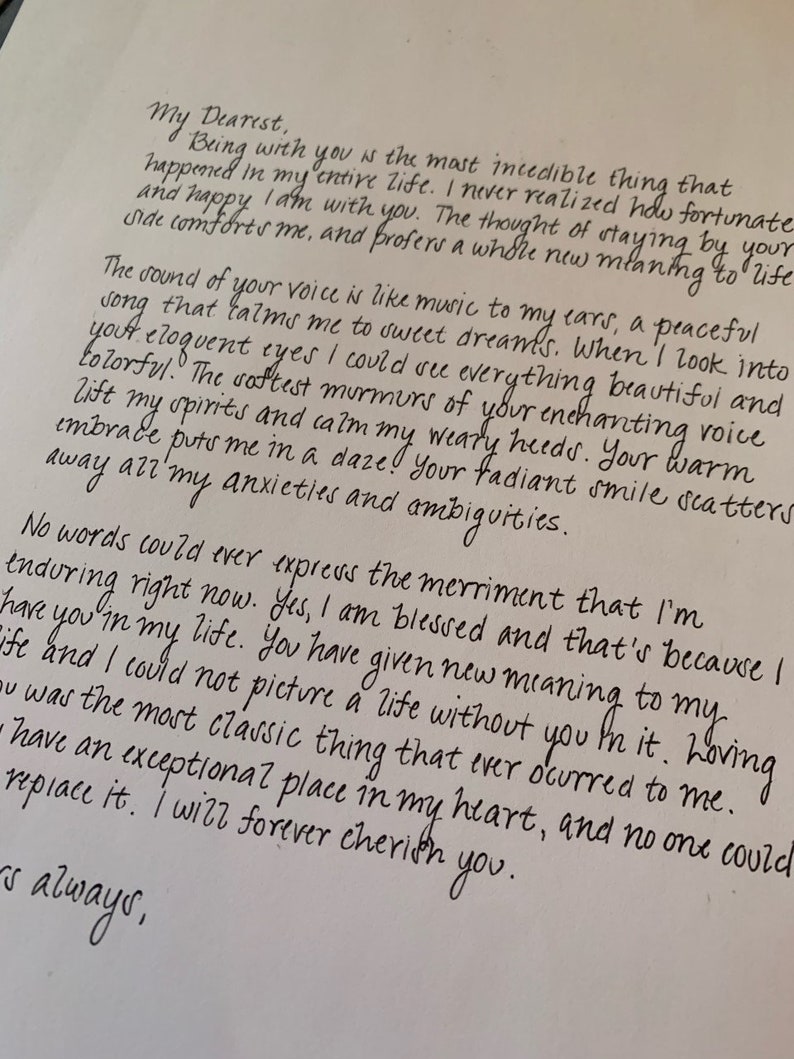 My Dearest,
Being with you is the most incedible thing that
happened in my entire life. I never realized how fortunate
and happy I am with you. The thought of staying by your
side comforts me, and profers a whole new meaning to life
The sound of your voice is like music to my ears, a peaceful
song that calms me to sweet dreams. When I look into
your eloquent eyes I could see everything beautiful and
colorful. The softest murmurs of your enchanting voice
lift my spirits and calm my weary heeds. Your warm
embrace puts me in a daze! Your radiant smile scatters
away all my anxieties and ambiguities.
No words could ever express the merriment that I'm
enduring right now. Yes, I am blessed and that's because I
have you in my life. You have given new meaning to my
life and I could not picture a life without you in it. Loving
was the most classic thing that ever ocurred to me.
have an exceptional place in my heart, and no one could
replace it. I will forever cherish you.
always,